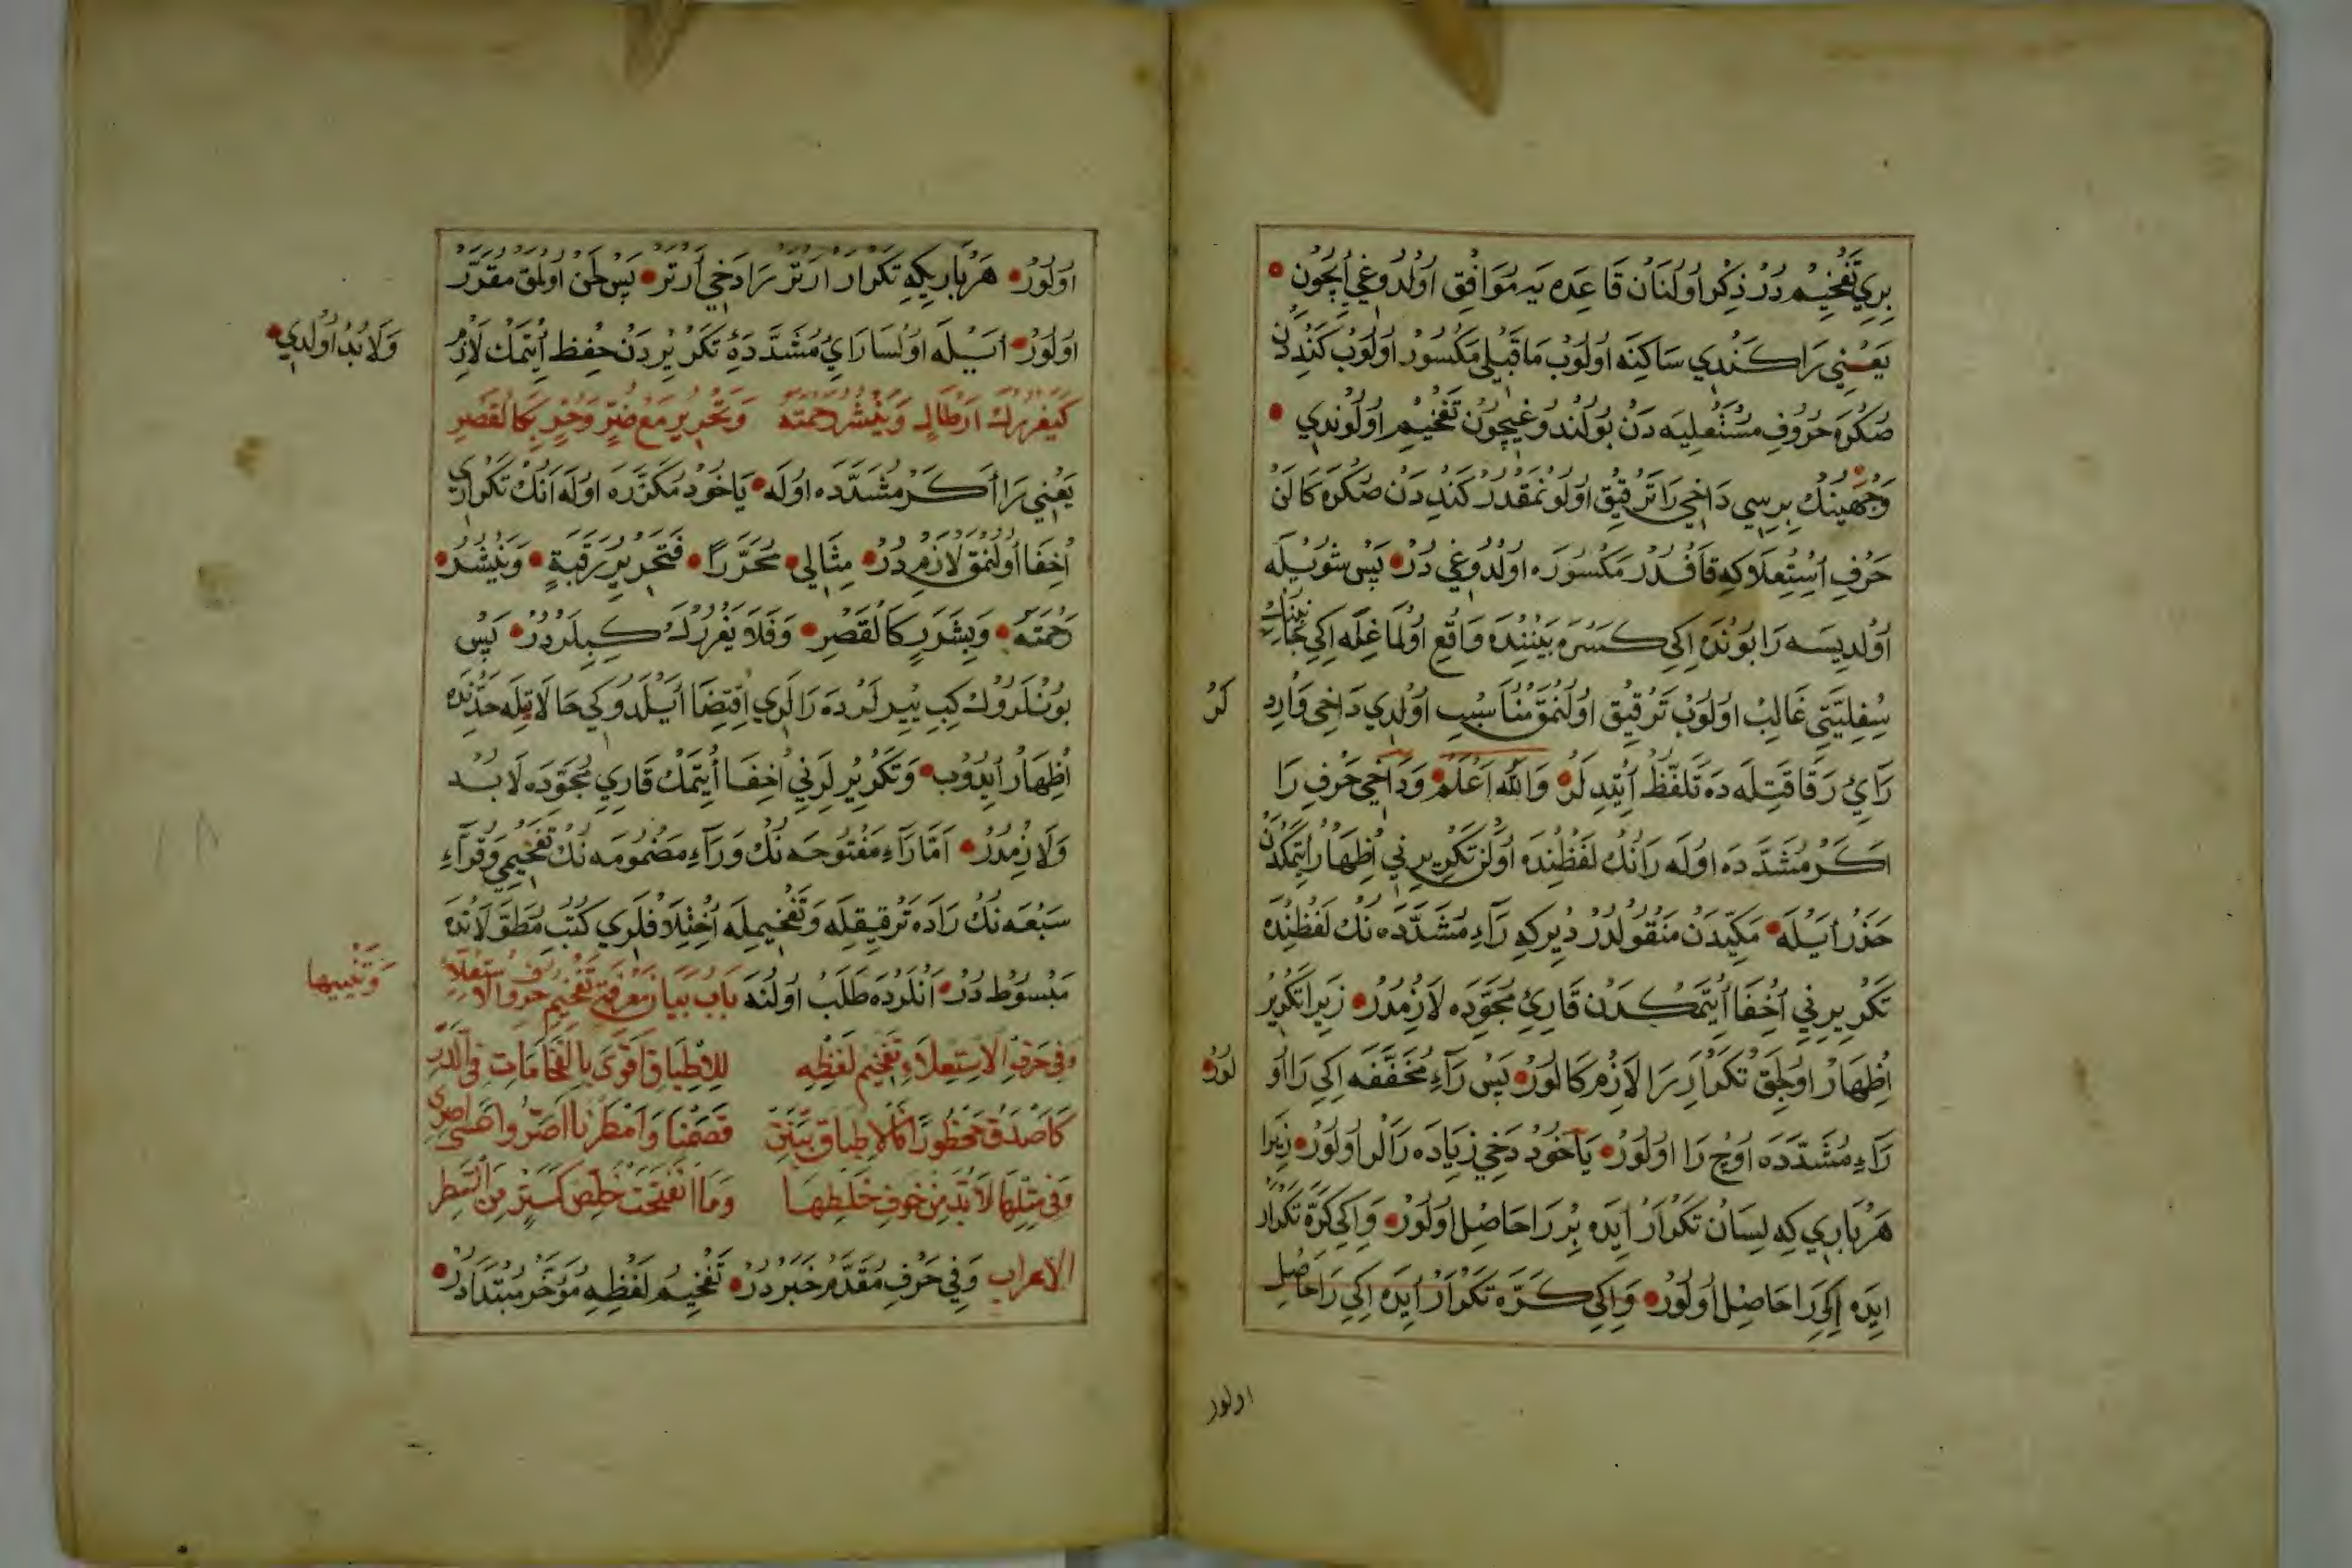 بِرِي تَفْخِيمْ دُرْ ذِكْرْ اُولُنَانْ قَاعِدَه يَه مُوَافِقْ اُولْدُوغِي اِچُونْ
يَعْنِي رَا كَنْدِي سَاكِنَه اُولُوبْ مَاقَبْلِي مَكْسُورْ اُولُوبْ كَنْدِدَنْ
صُكْرَه حُرُوفِ مُسْتَعْلِيَه دَنْ بُولُنْدُوغِيچُونْ تَفْخِيمْ اُولُونْدِي
وَجْهَيْنُكْ بِرِيسِي دَاخِي رَا تَرْقِيقْ اُولُونْمَقْدُرْ كَنْدِدَنْ صُكْرَه كَالَنْ
حَرْفِ اِسْتِعْلَا كِه قَافْدُرْ مَكْسُورَه اُولْدُوغِي دُرْ پَسْ شُويْلَه
اُولْدِيسَه رَا بُونْدَه اِكِي كَسْرَه بَيْنِنْدَه وَاقِعْ اُولْمَاغِلَه اِكِي جَانِبِنُكْ
سُفْلِيَّتِي غَالِبْ اُولُوبْ تَرْقِيقْ اُولُنْمَقْ مُنَاسِبْ اُولْدِي دَاخِي وَارِدْ
لَرْ
رَايْ رِقَاقَتِلَه دَه تَلَفُّظْ اَيْتْدِلَرْ وَاللّٰه اَعْلَمْ وَدَاخِي حَرْفِ رَا
اَكَرْ مُشَدَّدَه اُولَه رَانُكْ لَفْظِنْدَه اُولَنْ تَكْرِيرِنِي اِظْهَارْ اِتْمَكْدَنْ
حَذَرْ اَيْلَه مَكِّيدَنْ مَنْقُولْدُرْ دِيرْ كِه رَاءِ مُشَدَّدَه نُكْ لَفْظِنْدَه
تَكْرِيرِنِي اِخْفَا اِيْتْمَكْدَنْ قَارِئِ مُجَوِّدَه لَازِمْدُرْ زِيرَا تَكْرِيرْ
اِظْهَارْ اُولِجَقْ تَكْرَارِ رَا لَازِمْ كَالُورْ پَسْ رَاءِ مُخَفَّفَه اِكِي رَا اُو
لُورْ
رَاءِ مُشَدَّدَه اُوچْ رَا اُولُورْ يَاخُودْ دَخِي زِيَادَه رَالَرْ اُولُورْ زِيرَا
هَرْ بَارِي كِه لِسَانْ تَكْرَارْ اِيدَه بِرْ رَا حَاصِلْ اُولُورْ وَاِكِي كَرَّه تَكْرَارْ
اِيدَه اِكِي رَا حَاصِلْ اُولُورْ وَاِكِي كَرَّه تَكْرَارْ اِيدَه اِكِي رَا حَاصِلْ
اولور
اُولُورْ هَرْ بَارِيكِه تَكْرَارْ اَرْتَرْ رَا دَخِي اَرْتَرْ پَسْ لَحْنْ اُولْمَقْ مُقَرَّرْ
اُولُورْ اَيْلَه اُولْسَا رَايْ مُشَدَّدَه يِ تَكْرِيرْدَنْ حِفْظْ اِيْتْمَكْ لَازِمْ
وَلَابُدْ اُولْدِي
كَيَغْرُرْكَ اَرْطَالٍ وَيَنْشُرُ رَحْمَتَهُ وَتَحْرِيرُ مَعْ ضُرٍّ وَحُرٍّ كَالْقَصْرِ
يَعْنِي رَا اَكَرْ مُشَدَّدَه اُولَه يَاخُودْ مُكَرَّرَه اُولَه اَنُكْ تَكْرَارِي
اِخْفَا اُولُنْمَقْ لَازِمْ دُرْ مِثَالِي مُحَرَّرًا فَتَحْرِيرُ رَقَبَةٍ وَيَنْشُرُ
رَحْمَتَهُ وَبِشَرَرٍ كَالْقَصْرِ وَفَلَا يَغْرُرْكَ كِبِيلَرْدُرْ پَسْ
بُونْلَرُوكْ كِبِي يِيرْلَرْدَه رَالَرِي اِقْتِضَا اَيْلَدُوكِي حَالَاتِلَه حَدِّنْدَه
اِظْهَارْ اِيدُوبْ وَتَكْرِيرْلَرِنِي اِخْفَا اِيْتْمَكْ قَارِي مُجَوِّدَه لَابُدْ
وَلَازِمْدُرْ اَمَّا رَاءِ مَفْتُوحَه نُكْ وَرَاءِ مَضْمُومَه نُكْ تَفْخِيمِي وَقُرَّاءِ
سَبْعَه نُكْ رَادَه تَرْقِيقِلَه وَتَفْخِيمِلَه اِخْتِلَافْلَرِي كُتُبِ مُطَوَّلَاتْدَه
مَبْسُوطْ دُرْ اَنْلَرْدَه طَلَبْ اُولُنَه بَابُ بَيَانِ مَعْرِفَةِ تَفْخِيمِ حُرُوفِ الْاِسْتِعْلَاءِ
وَتَنْبِيهَا
وَفِي حَرْفِ الْاِسْتِعْلَاءِ تَفْخِيمُ لَفْظِهِ لِلْاِطْبَاقِ اَقْوَى بِالْفَخَامَاتِ فِي الدُّرِّ
كَاَصْدَقُ مَحْظُورًا كَالْاِطْبَاقِ بَيِّنَنْ قَصَصْنَا وَاَمْطَرْنَا اَصَرُّوا عَسَى اِصْرِي
وَفِي مِثْلِهَا لَابُدَّ مِنْ خَوْفِ خَلْطِهَا وَمَا انْفَتَحَتْ خَلِّصْ كَسِتْرٍ مِنَ السَّطْرِ
الْاِعْرَاب وَفِي حَرْفِ مُقَدَّمْ خَبَرْدُرْ تَفْخِيمُ لَفْظِهِ مُؤَخَّرْ مُبْتَدَادُرْ